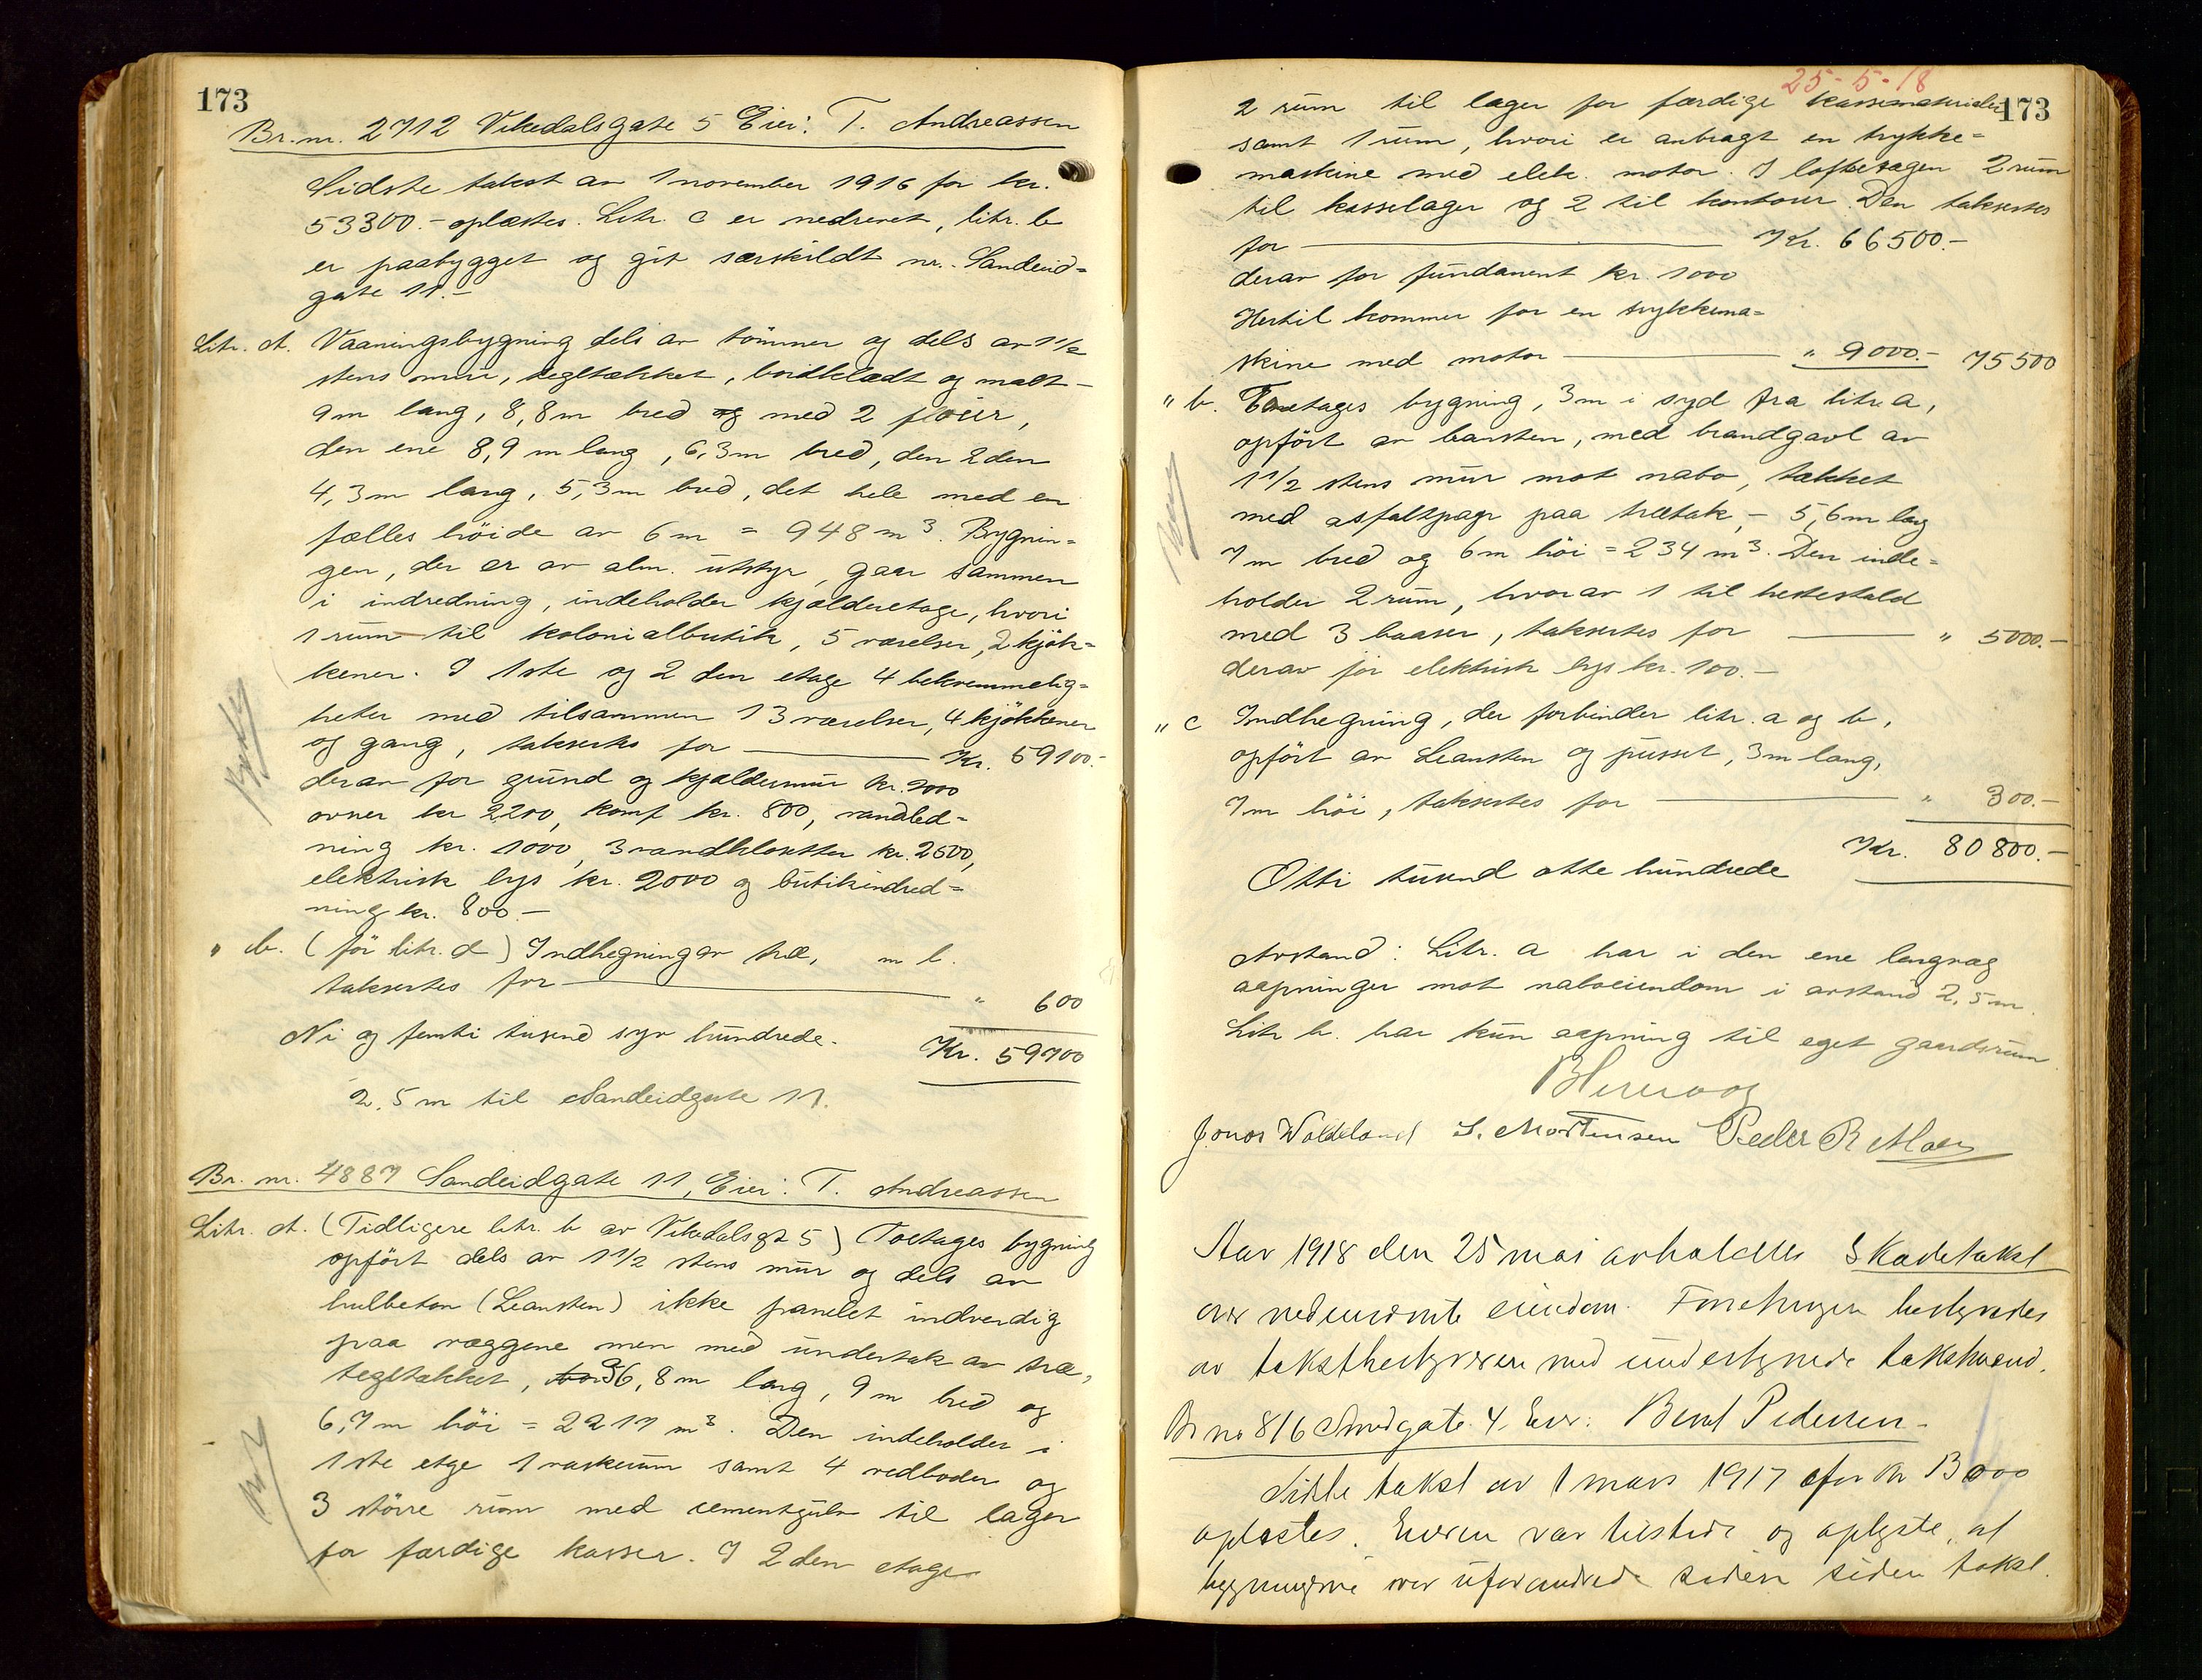 173
Br. nr. 2712 Vikedalsgate 5 Eier: T. Andreassen
Sidste takst av 1 november 1916 for kr.
53300.- oplæstes. Litr. c er nedrevet, litr. b
er paabygget og git særskildt nr. Sandeid=
gate 11.-
Litr. A. Vaaningsbygning dels av tömmer og dels av 1 1/2
stens mur, tegltækket, bordklædt og malt -
9m lang, 8,8m bred og med 2 fløier,
den ene 8,9 m lang, 6,3m bred, den 2den
4,3m lang, 5,3m bred, det hele med en
fælles höide av 6m = 948 m³. Bygnin=
gen, der er av alm. utstyr, gaar sammen
i indredning, indeholder kjælderetage, hvori
1 rum til kolonialbutik, 5 værelser, 2 kjök=
kener. I 1ste og 2den etage 4 bekvemmelig=
heter med tilsammen 13 værelser, 4 kjökkener
og gang, taksertes for Kr. 59100.-
derav for grund og kjældermur kr. 2000
ovner kr 2200, komf kr. 800, vandled=
ning kr. 1000, 3 vandklosetter kr. 2500,
elektrisk lys kr. 2000 og butikindred=
ning kr. 800.-
" b. (för litr. d) Indhegning av træ, m l.
taksertes for " 600
Ni og femti tusend syv hundrede. Kr. 59700
2,5 m til Sandeidgate 11.
Br. nr. 4887 Sandeidgate 11, Eier: T. Andreassen
Litr. A. (Tidligere litr. b av Vikedalsgt 5) Toetages bygning
opfört dels av 1 1/2 stens mur og dels av
hulbeton (Leansten) ikke panelet indvendig
paa væggene men med undertak av træ,
tegltækket, 36,8m lang, 9m bred og
6,7m höi = 2217 m³. Den indeholder i
1ste etge 1 vaskerum samt 4 vedboder og
3 större rum med cementgulv til lager
for færdige kasser. I 2den etage
25-5-18
173
2 rum til lager for færdige kassematerialer
samt 1 rum, hvori er anbragt en trykke=
maskine med elek. motor. I loftsetagen 2 rum
til kasselager og 2 til kontorer. Den taksertes
for Kr. 66500.-
derav for fundament kr. 1000
Hertil kommer for en trykkema=
skine med motor " 9000.- 75500
" b. Toetages bygning, 3m i syd fra litr. a,
opfört av leansten, med brandgavl av
1 1/2 stens mur mot nabo, tækket
med asfaltpap paa trætak, - 5,6m lang
7m bred og 6m höi = 234 m³. Den inde=
holder 2 rum, hvorav 1 til hestestald
med 3 baaser, taksertes for " 5000.-
derav for elektrisk lys kr. 100.-
" c Indhegning, der forbinder litr. a og b,
opfört av Leansten og pusset, 3m lang,
7m höi, taksertes for " 300.-
Kr. 80800.-
Otti tusend otte hundrede
Avstand: Litr. a har i den ene langvæg
aapninger mot naboeiendom i avstand 2,5m.
Litr b. har kun aapning til eget gaardsrum
Jonas Waldeland S. Mortensen Peder R Moen
Aar 1918 den 25 mai avholdtes Skadetakst
over nedennævnte eiendom. Forretningen bestyredes
av takstbestyreren med undertegnede takstmænd.
Br no 816 Smedgate 4. Eier: Bent Pedersen -
Sidste takst av 1 mars 1917 for kr 13000
oplæstes. Eieren var tilstede og oplyste, at
bygningerne var uforandrede siden siden takst.